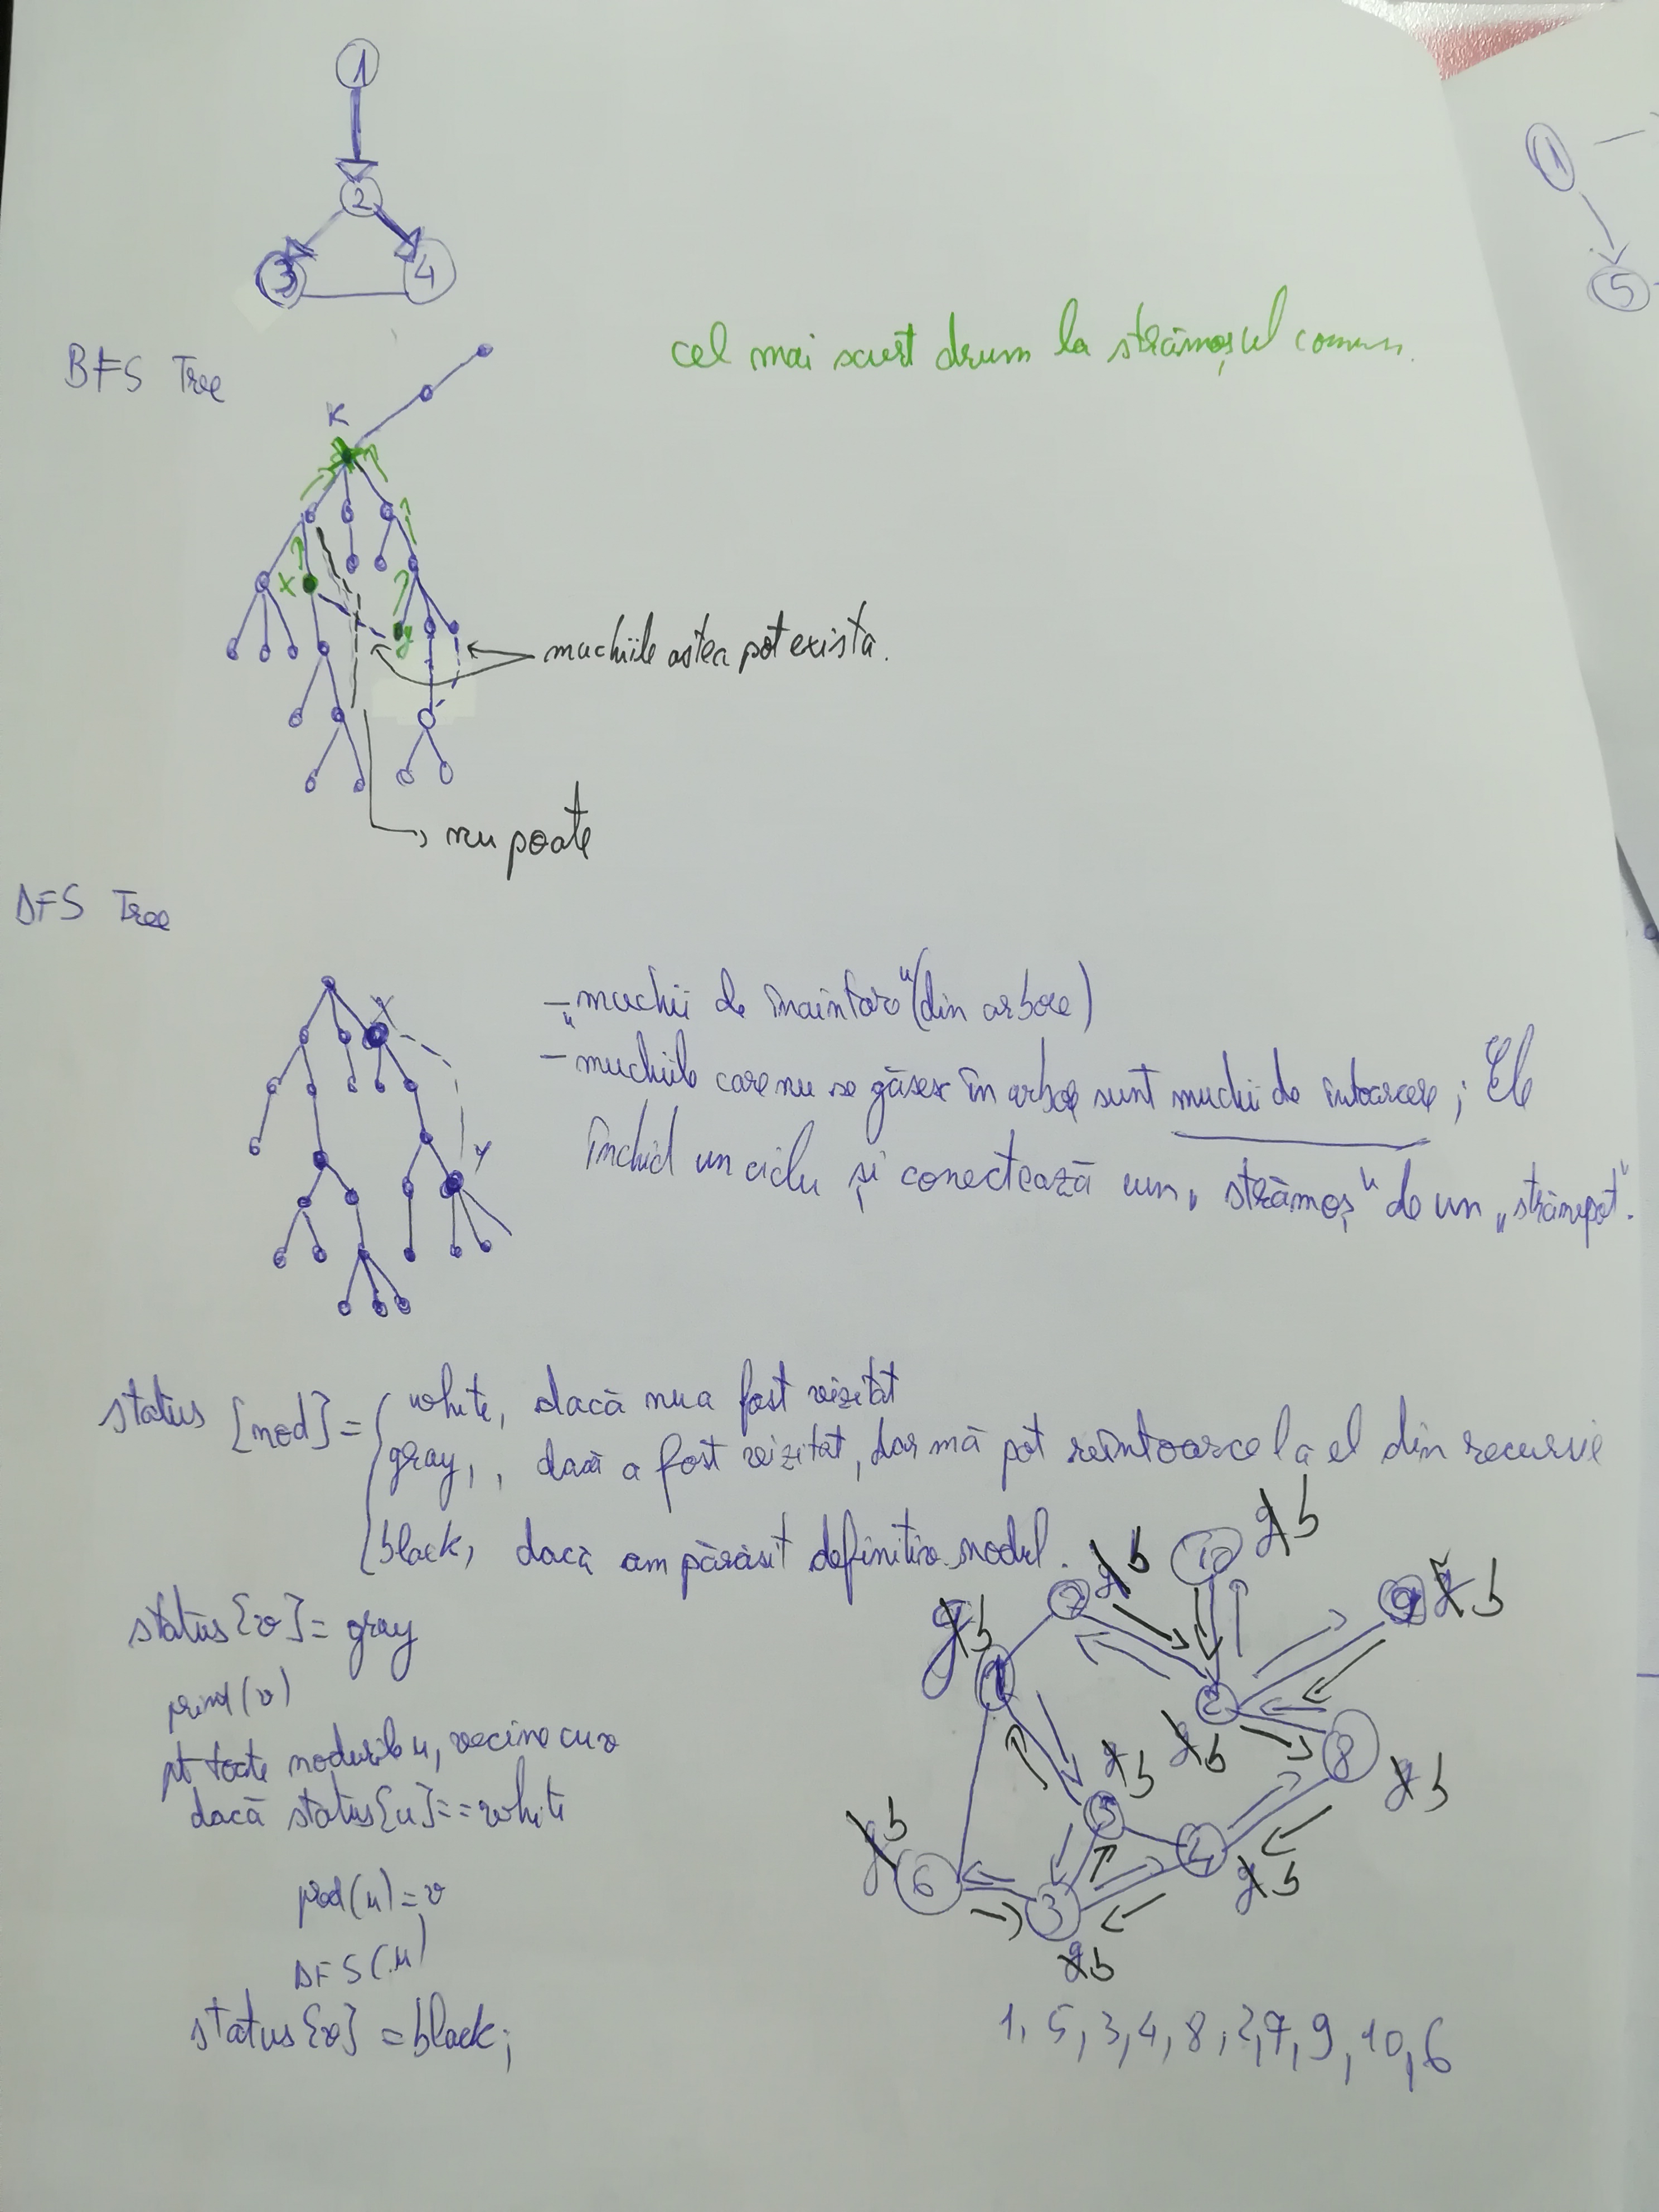 1
2
3 4
1
5
cel mai scurt drum la strămoșul comun.
BFS Tree
K
x
y
muchiile astea pot exista.
nu poate
DFS Tree
X
Y
- „muchii de înaintare" (din arbore)
- muchiile care nu se găsesc în arbore sunt muchii de întoarcere; Ele
închid un ciclu și conectează un „strămoș" de un „strănepot".
status [nod] = { white, dacă nu a fost vizitat
gray, , dacă a fost vizitat, dar mă pot reîntoarce la el din recursi
black, dacă am părăsit definitiv nodul.
status[v] = gray
print(v)
pt toate nodurile u, vecine cu v
dacă status[u] == white
pred(u) = v
DFS(u)
status[v] = black;
10 g b
7 g b
9 g b
g b
1
2
g b
8
g b
5 g b
4
g b
g b
6
3
g b
1, 5, 3, 4, 8, 2, 7, 9, 10, 6